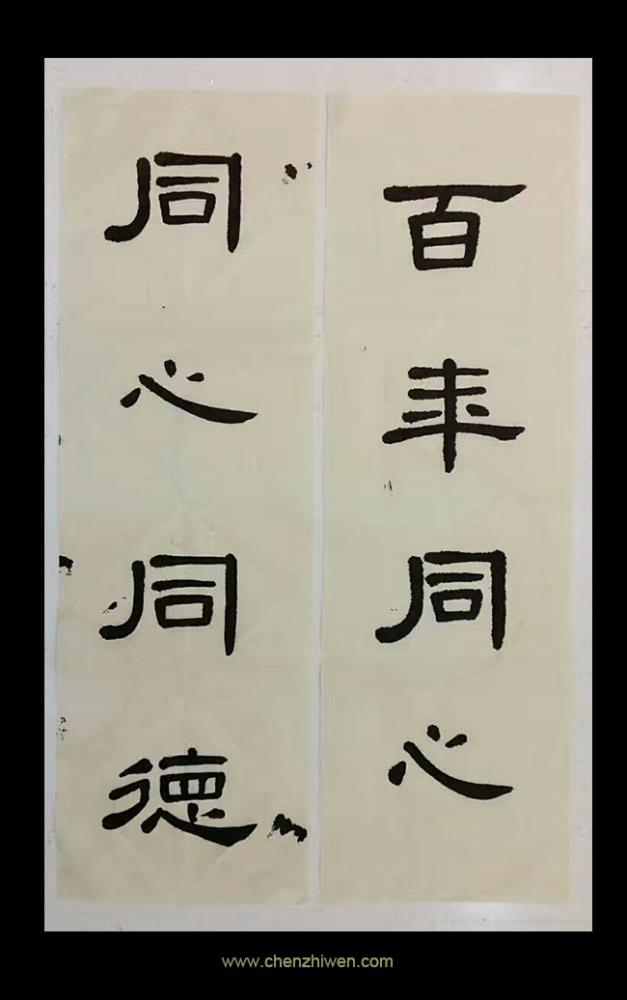 百年同心
同心同德
www.chenzhiwen.com